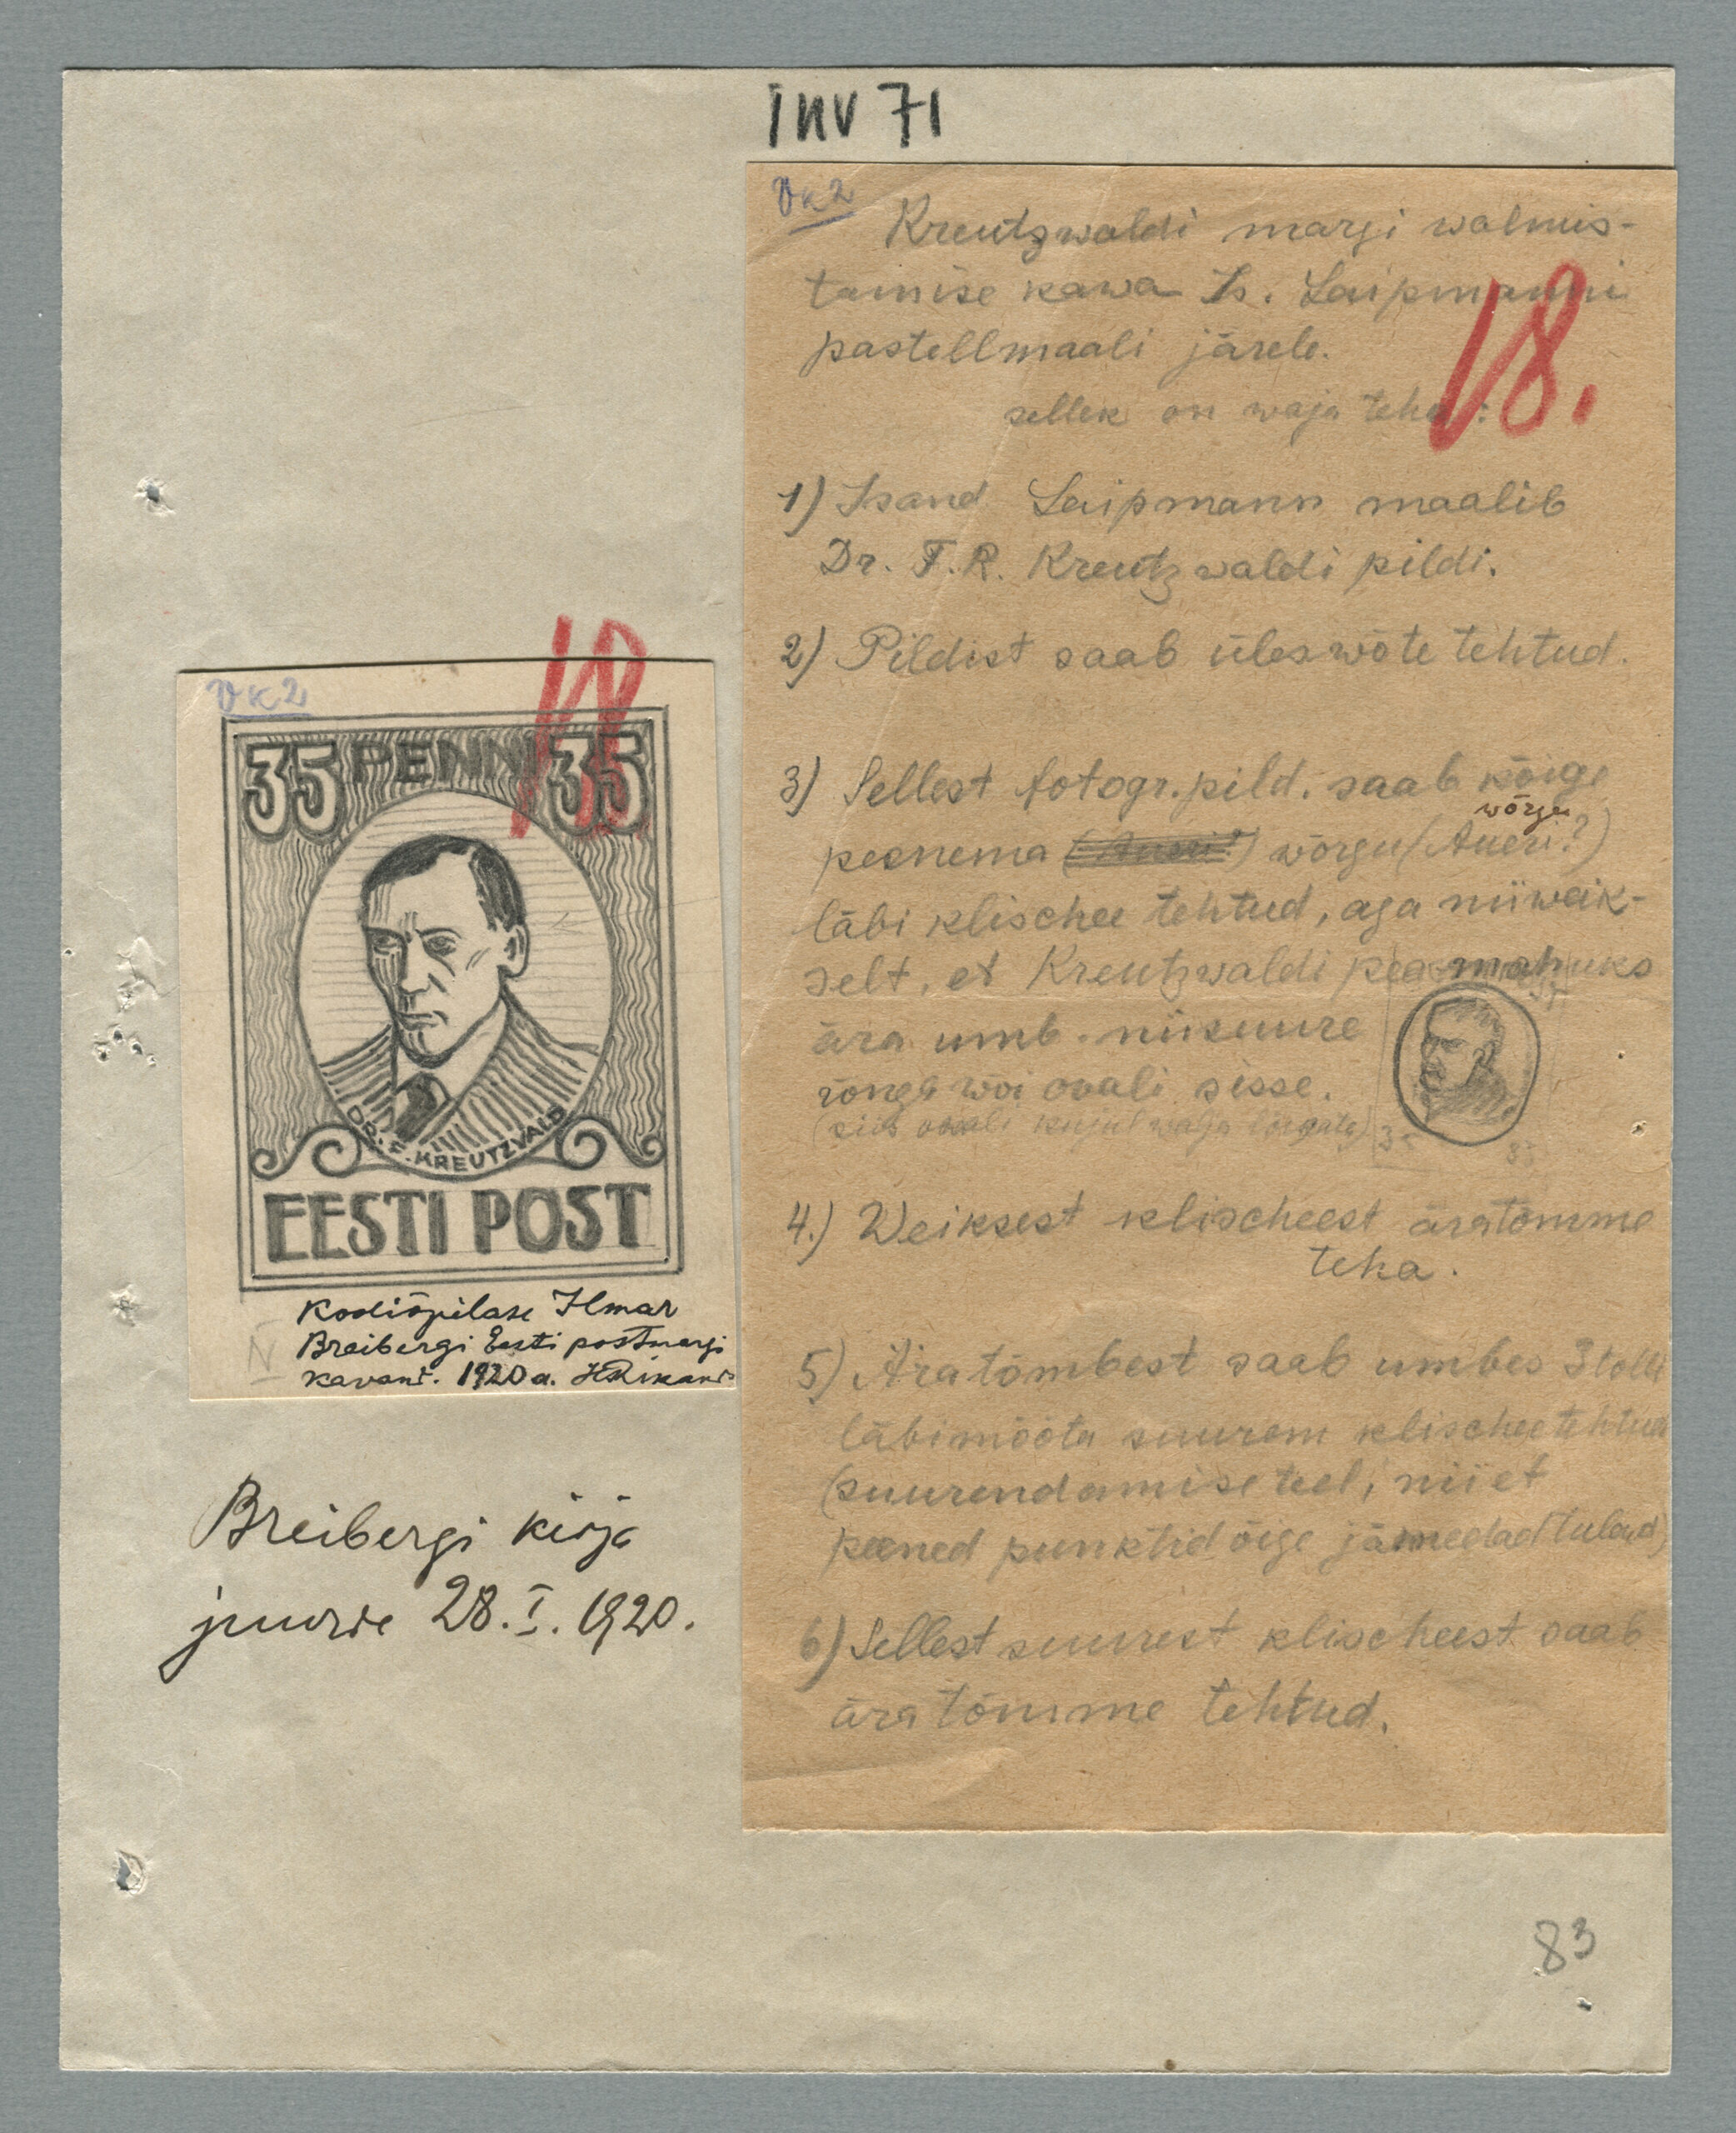 INV 71
Vk2
Kreutzwaldi margi walmis-
tamise kawa Is. Laipmanni
pastellmaali järele.
sellek on waja teha:
18.
1) Isand Laipmann maalib
Dr. F. R. Kreutzwaldi pildi.
2) Pildist saab üleswõte tehtud.
3) Sellest fotogr. pild. saab kõige
wõrgu
peenema (Aueri?) wõrgu (Aueri?)
läbi klischee tehtud, aga nii weik-
selt, et Kreutzwaldi pea mahuks
ära umb. niisuure
rõnga wõi ovali sisse.
(siis ovali kujul walja lõigata)
35
4.) Weiksest klischeest äratõmme
teha.
5) Äratõmbest saab umbes 3 tolli
läbimõõta suurem klischee tehtud
(suurendamise teel, nii et
peened punktid õige jämedad tulevad)
6) Sellest suurest klischeest saab
äratõmme tehtud.
Vk2
18
35 PENNI 35
DR. F. KREUTZVALD
EESTI POST
N
Kooliõpilase Ilmar
Breibergi Eesti postmargi
kavand. 1920 a.
Breibergi kirja
juurde 28. I. 1920.
83